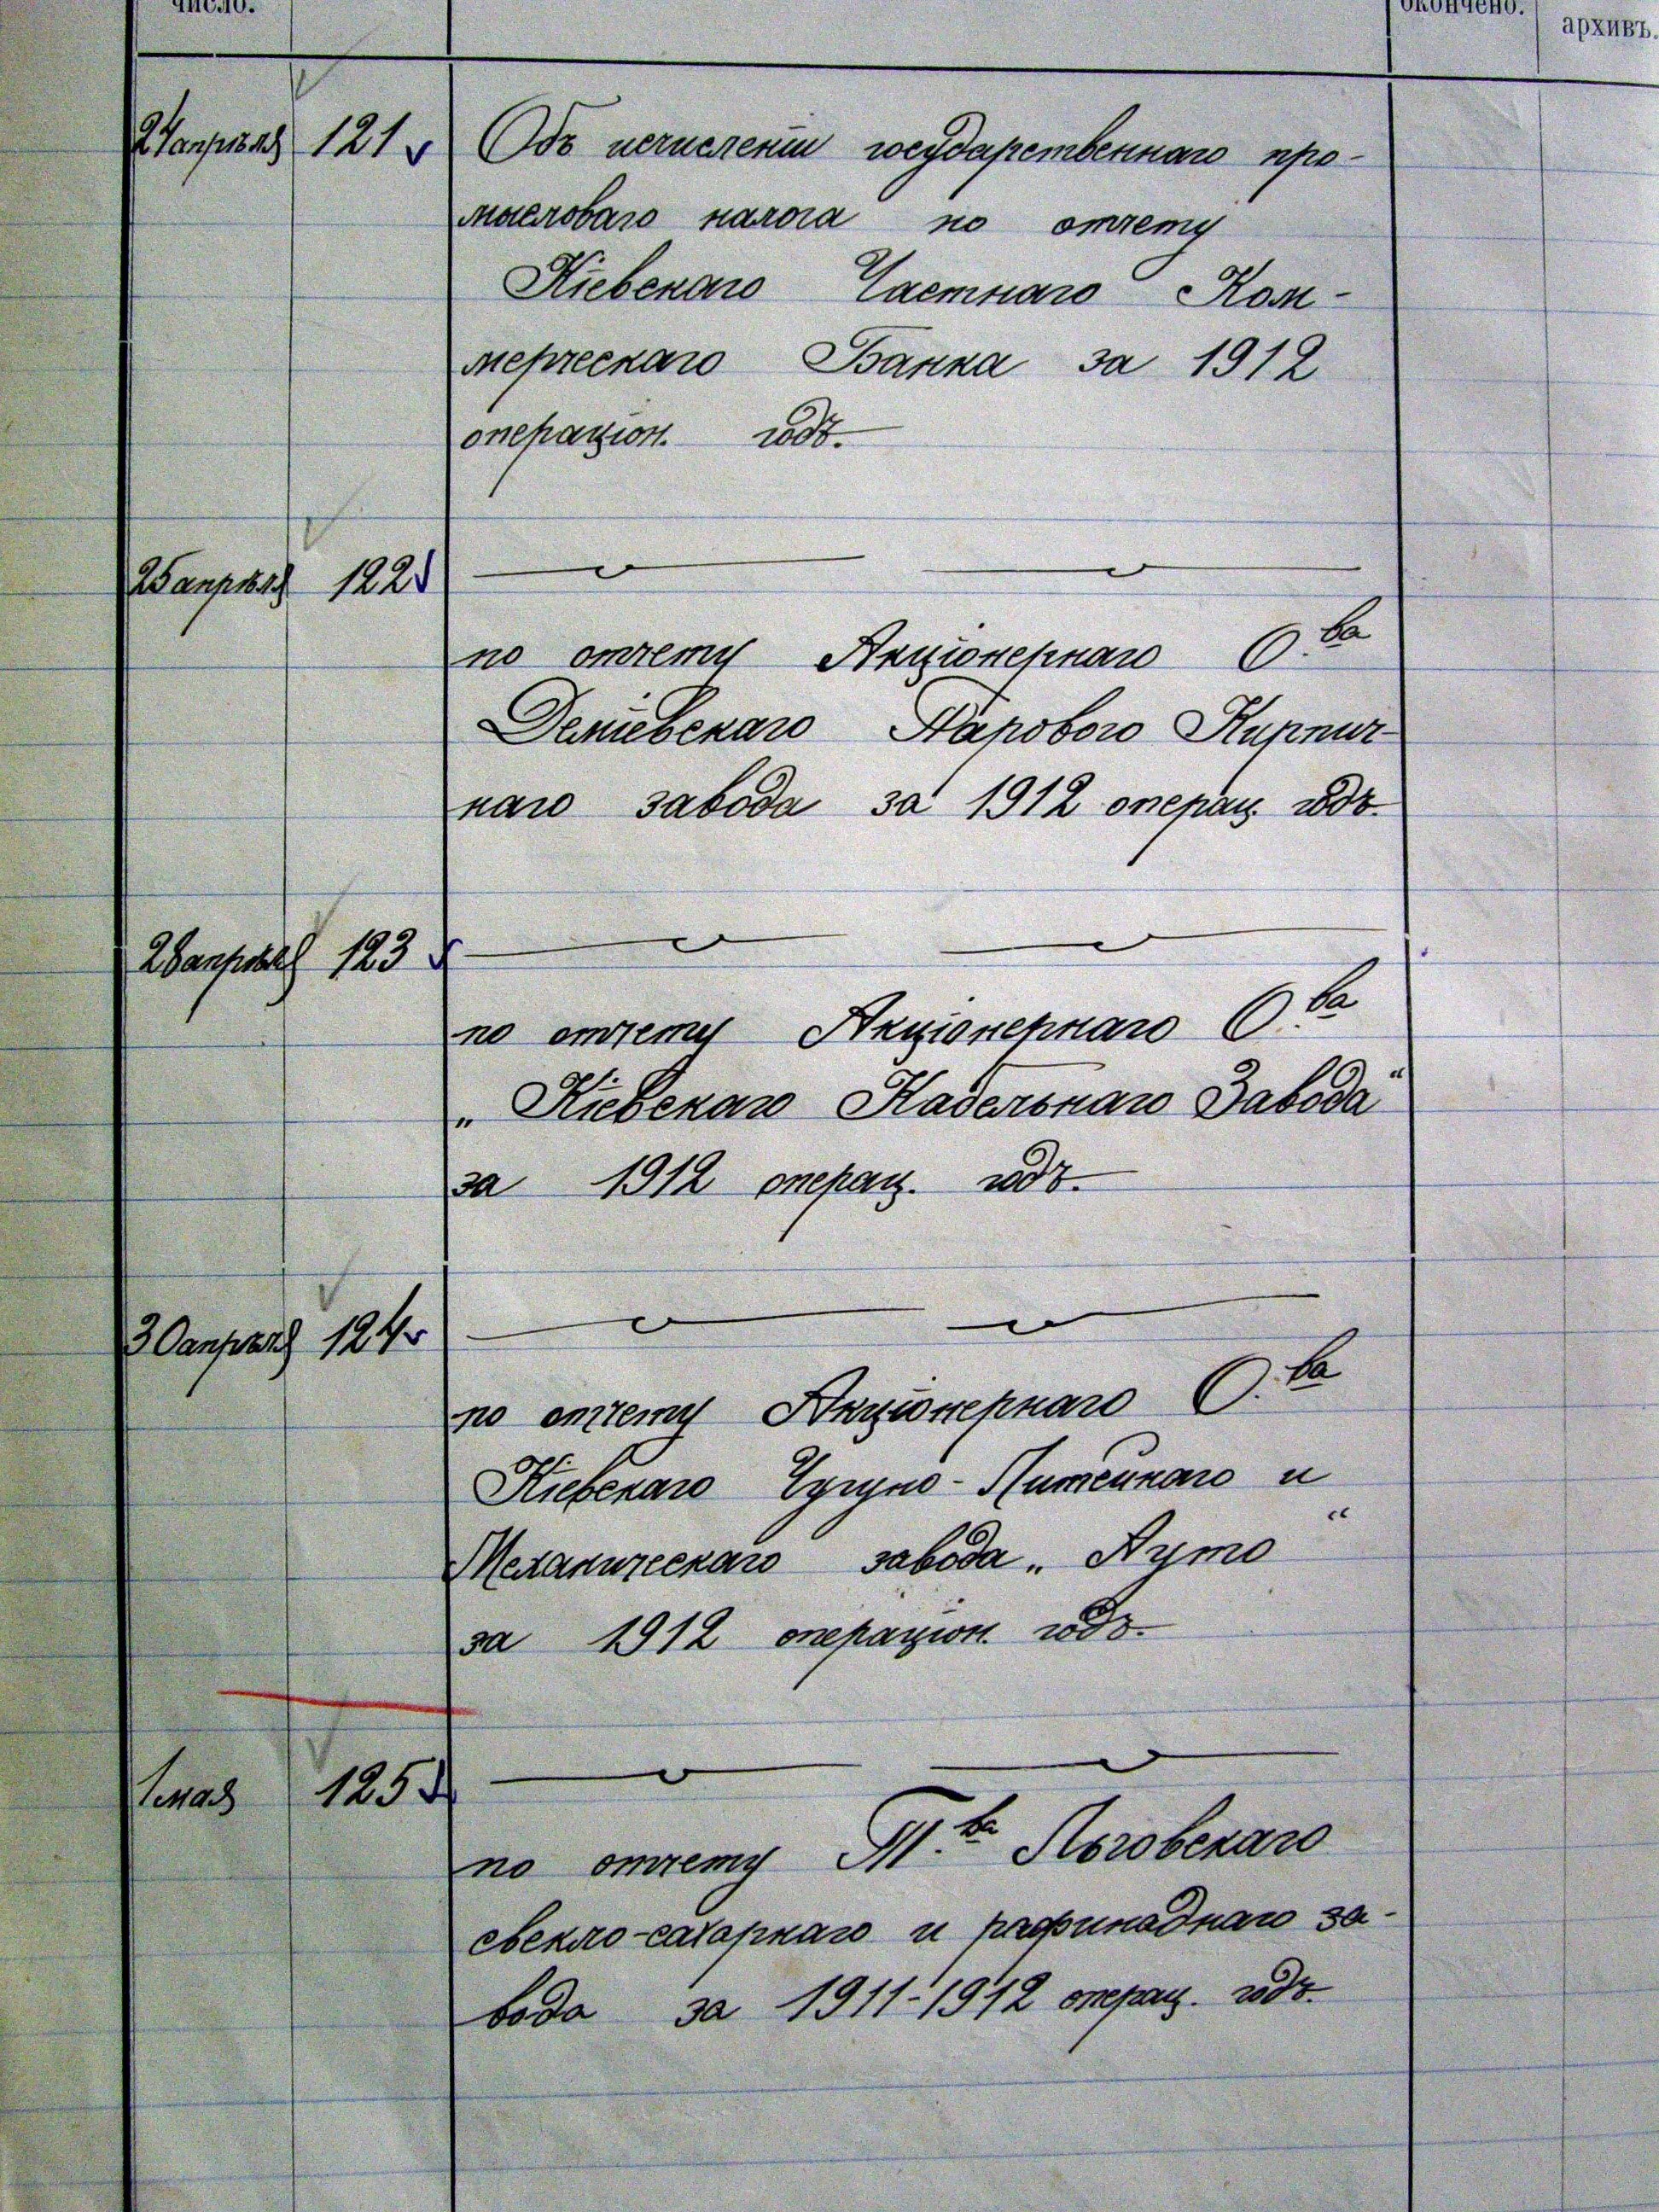 число.
окончено.
архивъ.
24 апрѣля 121
Объ исчисленіи государственнаго про-
мысловаго налога по отчету
Кіевскаго Частнаго Ком-
мерческаго Банка за 1912
операціон. годъ.
25 апрѣля 122
по отчету Акціонернаго О.ва
Деміевскаго Парового Кирпич-
наго завода за 1912 операц. годъ.
апрѣля 123
по отчету Акціонернаго О.ва
„Кіевскаго Кабельнаго Завода“
за 1912 операц. годъ.
30 апрѣля 124
по отчету Акціонернаго О.ва
Кіевскаго Чугуно-Литейнаго и
Механическаго завода „Ауто“
за 1912 операціон. годъ.
1 мая 125
по отчету Т.ва Льговскаго
свекло-сахарнаго и рафинаднаго за-
вода за 1911-1912 операц. годъ.